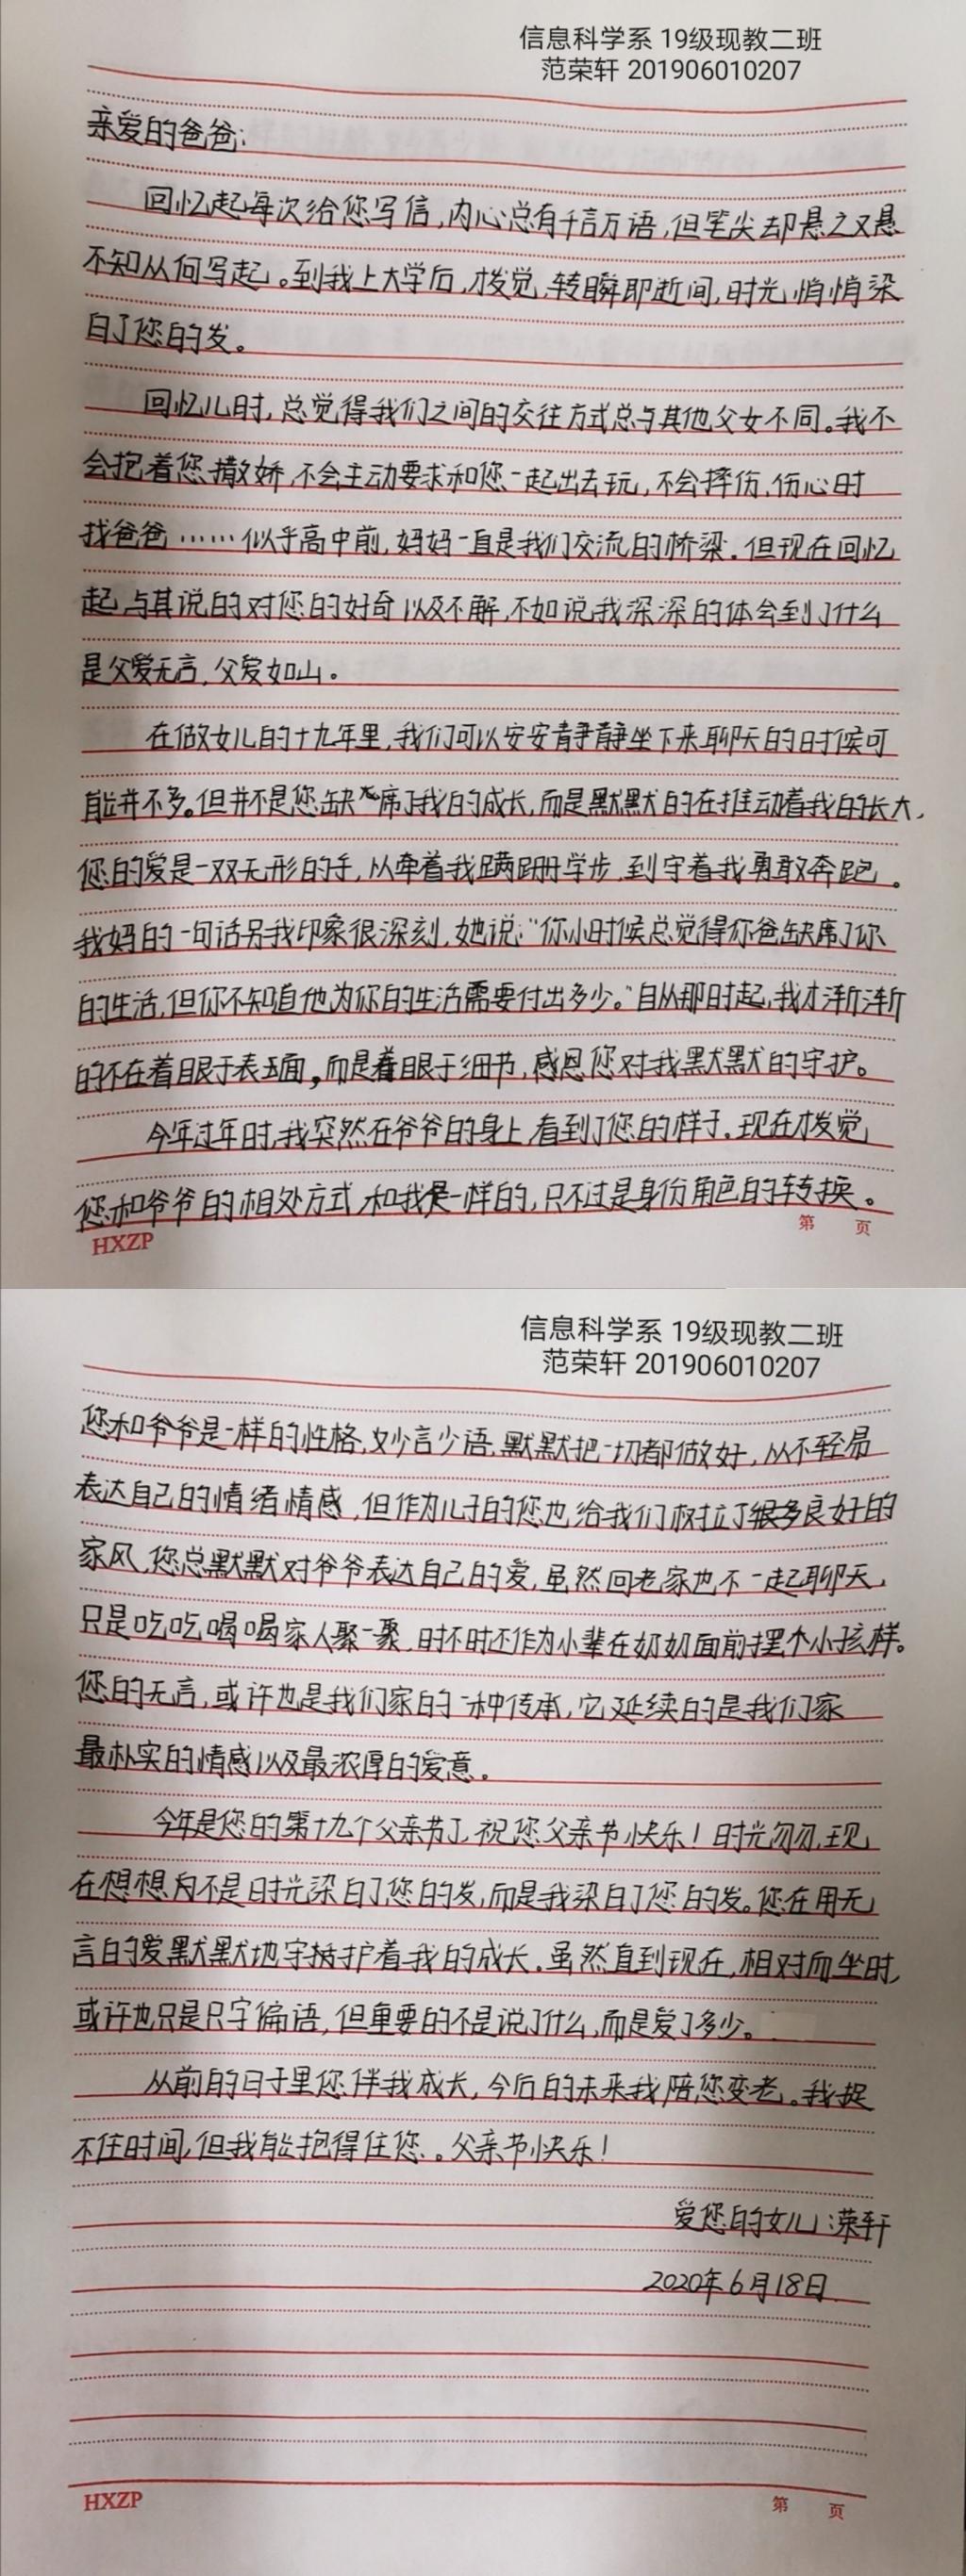 信息科学系 19级现教二班
范荣轩 201906010207
亲爱的爸爸:
回忆起每次给您写信,内心总有千言万语,但笔尖却悬之又悬
不知从何写起。到我上大学后,才发觉,转瞬即逝间,时光悄悄染
白了您的发。
回忆儿时,总觉得我们之间的交往方式总与其他父女不同。我不
会抱着您撒娇,不会主动要求和您一起出去玩,不会摔伤,伤心时
找爸爸……似乎高中前,妈妈一直是我们交流的桥梁.但现在回忆
起,与其说的对您的好奇以及不解,不如说我深深的体会到了什么
是父爱无言,父爱如山。
在做女儿的十九年里,我们可以安安静静坐下来聊天的时候可
能并不多。但并不是您缺席了我的成长,而是默默的在推动着我的长大,
您的爱是一双无形的手,从牵着我蹒跚学步,到守着我勇敢奔跑。
我妈的一句话另我印象很深刻,她说:“你小时候总觉得你爸缺席了你
的生活,但你不知道他为你的生活需要付出多少。”自从那时起,我才渐渐
的不在着眼于表面,而是着眼于细节,感恩您对我默默的守护。
今年过年时,我突然在爷爷的身上,看到了您的样子.现在才发觉,
您和爷爷的相处方式和我是一样的,只不过是身份角色的转换。
HXZP
第 页
信息科学系 19级现教二班
范荣轩 201906010207
您和爷爷是一样的性格,少言少语,默默把一切都做好,从不轻易
表达自己的情绪情感,但作为儿子的您也给我们树立了很多良好的
家风,您总默默对爷爷表达自己的爱,虽然回老家也不一起聊天,
只是吃吃喝喝家人聚一聚,时不时还作为小辈在奶奶面前摆个小孩样。
您的无言,或许也是我们家的一种传承,它延续的是我们家
最朴实的情感以及最浓厚的爱意。
今年是您的第十九个父亲节了,祝您父亲节快乐!时光匆匆,现
在想想,不是时光染白了您的发,而是我染白了您的发。您在用无
言的爱默默地守护着我的成长.虽然直到现在,相对而坐时,
或许也只是只字偏语,但重要的不是说了什么,而是爱了多少。
从前的日子里您伴我成长,今后的未来我陪您变老。我捉
不住时间,但我能抱得住您。父亲节快乐!
爱您的女儿:荣轩
2020年6月18日
HXZP
第 页